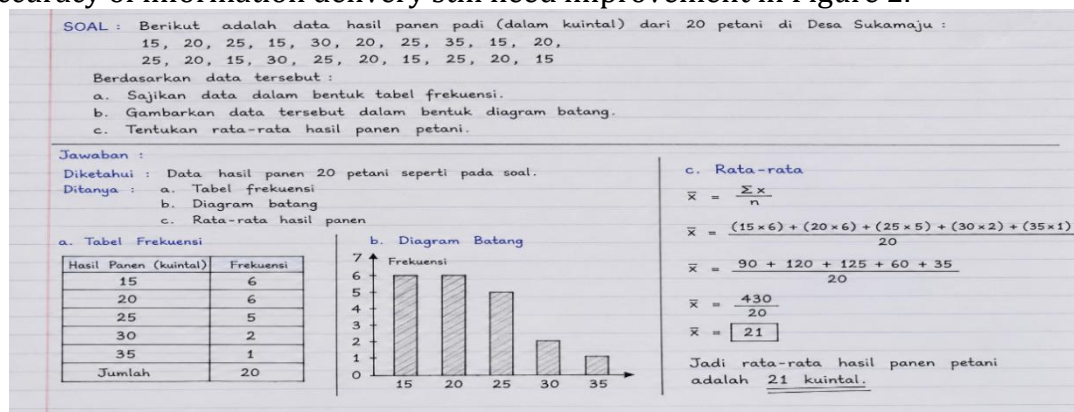 accuracy of information delivery still need improvement in Figure 2.
SOAL : Berikut adalah data hasil panen padi (dalam kuintal) dari 20 petani di Desa Sukamaju :
15, 20, 25, 15, 30, 20, 25, 35, 15, 20,
25, 20, 15, 30, 25, 20, 15, 25, 20, 15
Berdasarkan data tersebut :
a. Sajikan data dalam bentuk tabel frekuensi.
b. Gambarkan data tersebut dalam bentuk diagram batang.
c. Tentukan rata-rata hasil panen petani.
Jawaban :
Diketahui : Data hasil panen 20 petani seperti pada soal.
Ditanya : a. Tabel frekuensi
b. Diagram batang
c. Rata-rata hasil panen
a. Tabel Frekuensi
Hasil Panen (kuintal) Frekuensi
15 6
20 6
25 5
30 2
35 1
Jumlah 20
b. Diagram Batang
Frekuensi
7
6
5
4
3
2
1
0
15 20 25 30 35
c. Rata-rata
x̄ = Σx
n
x̄ = (15×6) + (20×6) + (25×5) + (30×2) + (35×1)
20
x̄ = 90 + 120 + 125 + 60 + 35
20
x̄ = 430
20
x̄ = 21
Jadi rata-rata hasil panen petani
adalah 21 kuintal.